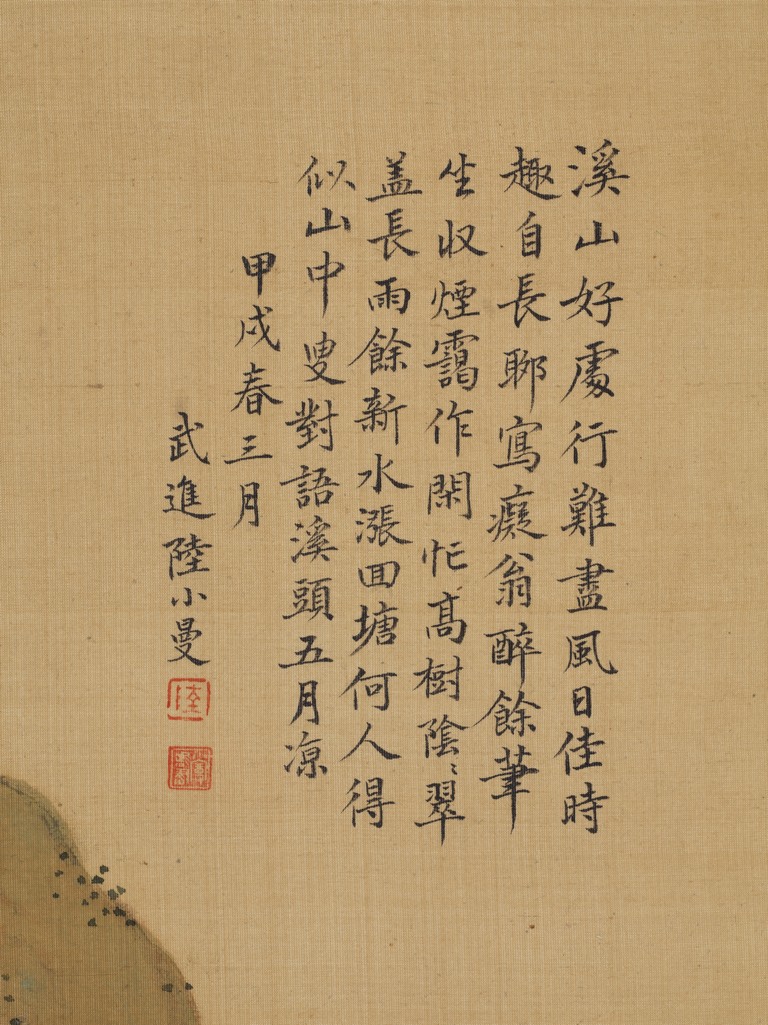 溪山好處行難盡風日佳時
趣自長聊寫癡翁醉餘筆
坐收煙靄作閑忙高樹陰〻翠
盖長雨餘新水漲回塘何人得
似山中叟對語溪頭五月凉
甲戌春三月
武進陸小曼
陸